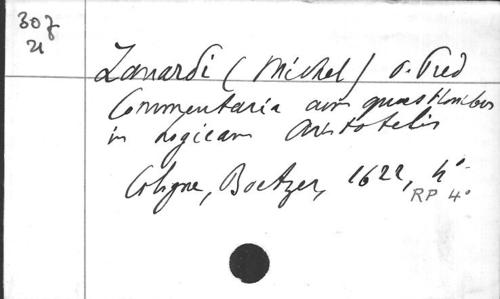 307
21
Zanardi (Michel) o. Pred
Commentaria cum quaestionibus
in Logicam Aristotelis
Cologne, Boetzer, 1622, 4°
RP 4°